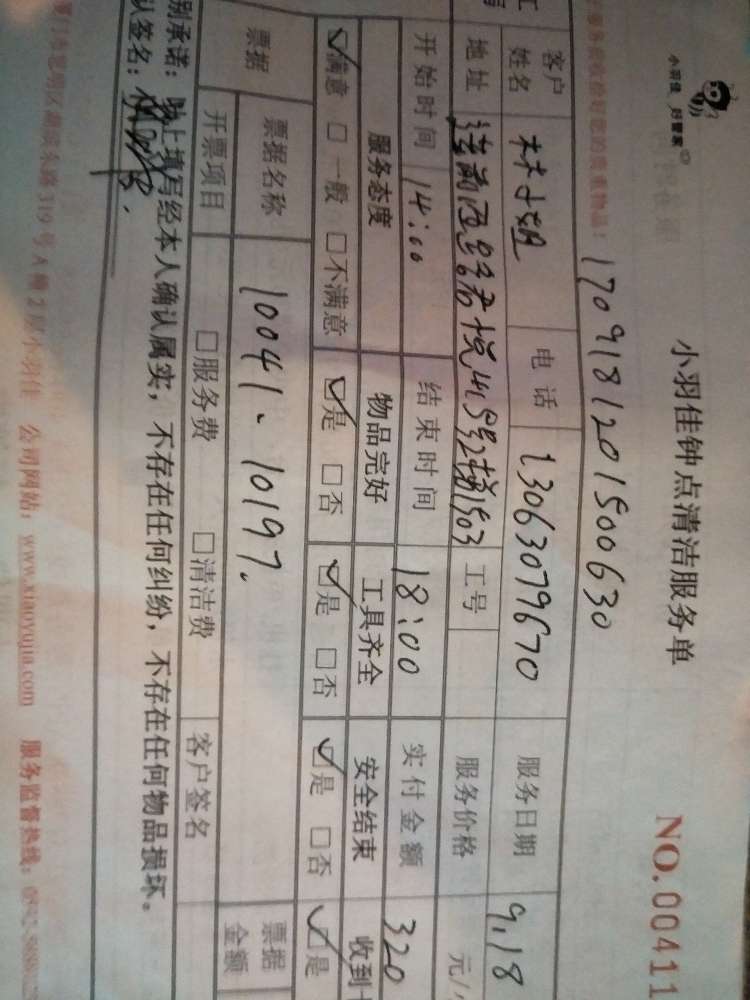 小羽佳 好管家
小羽佳钟点清洁服务单
NO.00411
170918120150063​0
客户姓名 林小姐 电话 13063079670 服务日期 9.18
地址 15号楼1503 工号 服务价格 元/
开始时间 14:00 结束时间 18:00 实付金额 320
服务态度 物品完好 工具齐全 安全结束 收到
☑满意 □一般 □不满意 ☑是 □否 ☑是 □否 ☑是 □否 ☑是
票据 票据名称 10041、10197. 票据金额
开票项目 □服务费 □清洁费 客户签名
别承诺：以上填写经本人确认属实，不存在任何纠纷，不存在任何物品损坏。
认签名：
厦门市思明区湖滨东路319号A幢2层小羽佳 公司网站：www.xiaoyujia.com 服务监督热线：